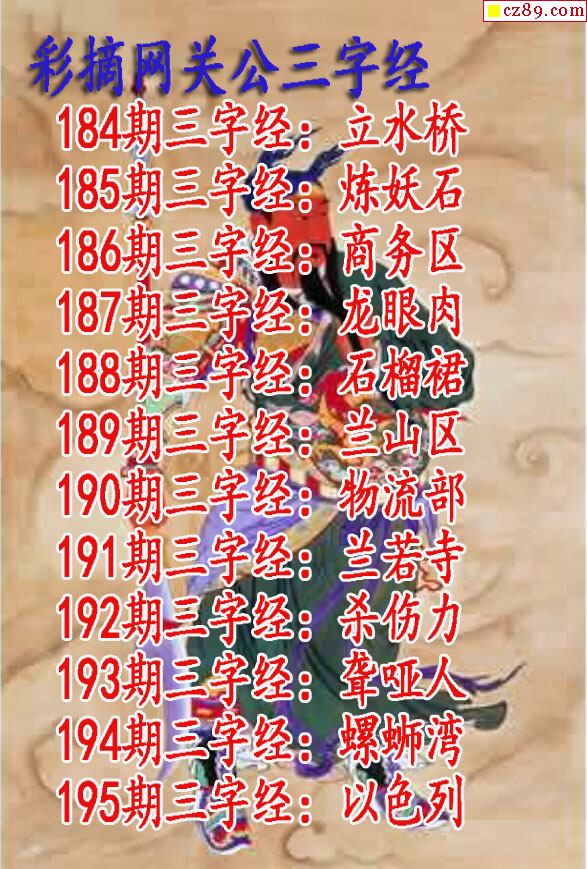 cz89.com
彩摘网关公三字经
184期三字经：立水桥
185期三字经：炼妖石
186期三字经：商务区
187期三字经：龙眼肉
188期三字经：石榴裙
189期三字经：兰山区
190期三字经：物流部
191期三字经：兰若寺
192期三字经：杀伤力
193期三字经：聋哑人
194期三字经：螺蛳湾
195期三字经：以色列